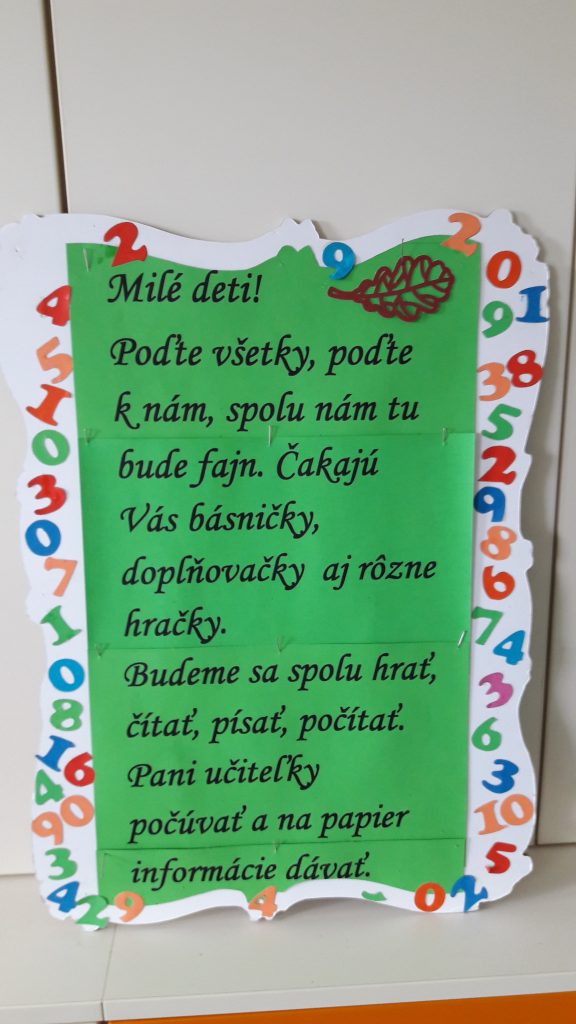 Milé deti!
Poďte všetky, poďte
k nám, spolu nám tu
bude fajn. Čakajú
Vás básničky,
doplňovačky aj rôzne
hračky.
Budeme sa spolu hrať,
čítať, písať, počítať.
Pani učiteľky
počúvať a na papier
informácie dávať.
2
4
5
1
0
3
0
7
1
0
8
1 6
4
9 0
3
4
2
9
4
0
2
9
2
0
9 1
3 8
5
2
9
8
6
7 4
3
6
3
10
5